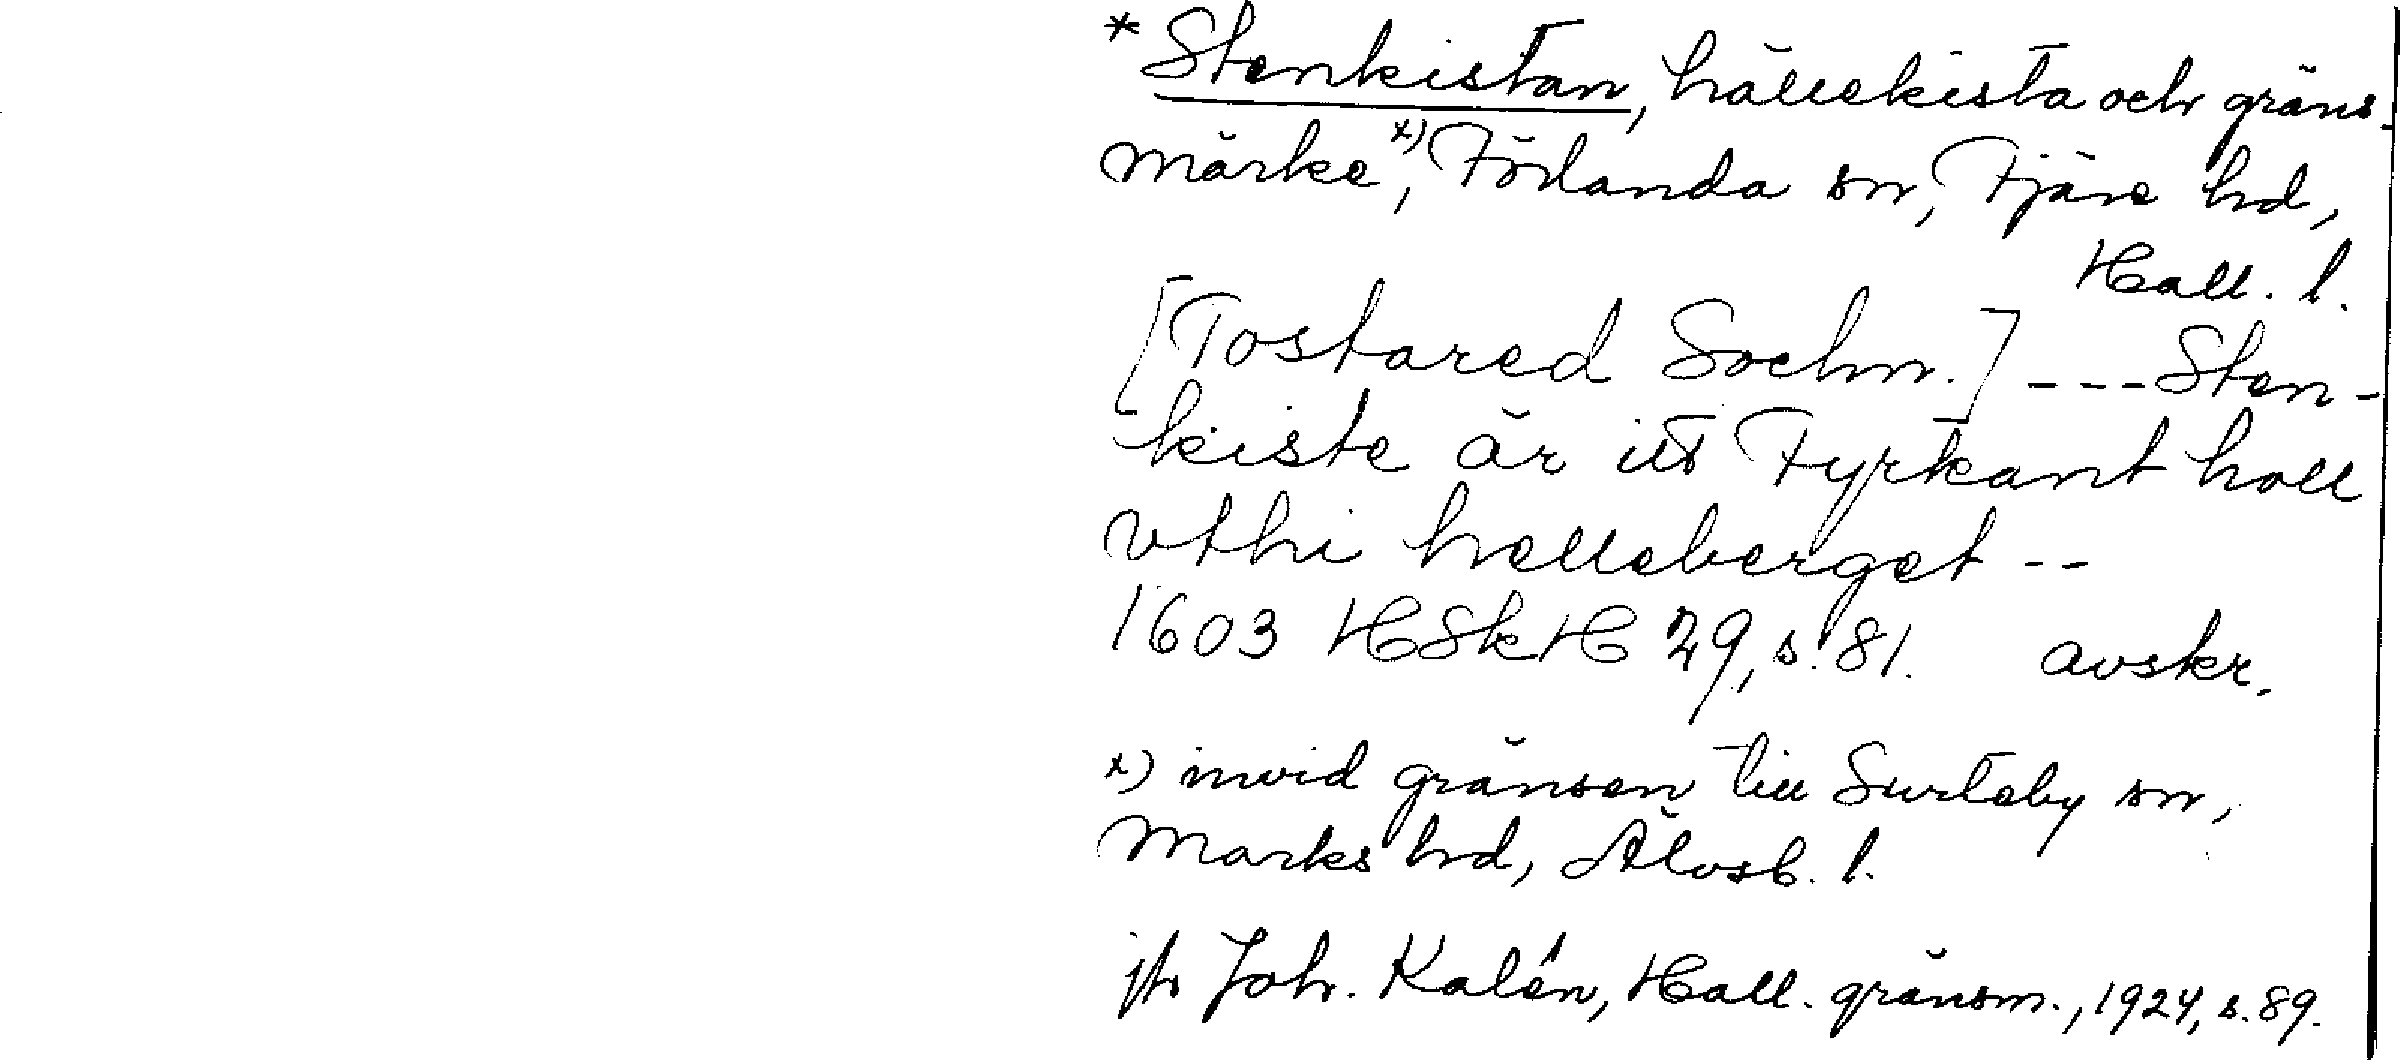 * Stenkistan, hällekista och gräns-
märke x), Förlanda sn, Fjäre hd,
Hall. l.
[Tostared Sochn.] --- Sten-
kiste är itt Fyrkant holl
vthi helleberget --
1603 HSkH 29, s. 81. avskr.
x) invid gränsen till Surteby sn,
Marks hd, Älvsb. l.
jfr Joh. Kalén, Hall. gränsm., 1924, s. 89.